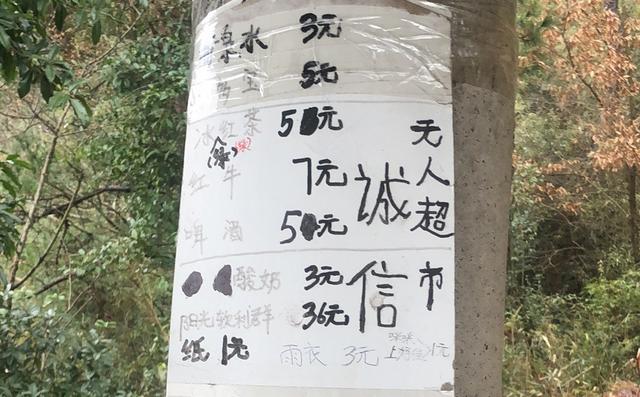 泉水 3元
宝 5元
冰红茶 5元
(绿)
红牛 7元
啤酒 5元
酸奶 3元
阳光软利群 36元
纸 1元
雨衣 3元
1元
诚信
无人超市